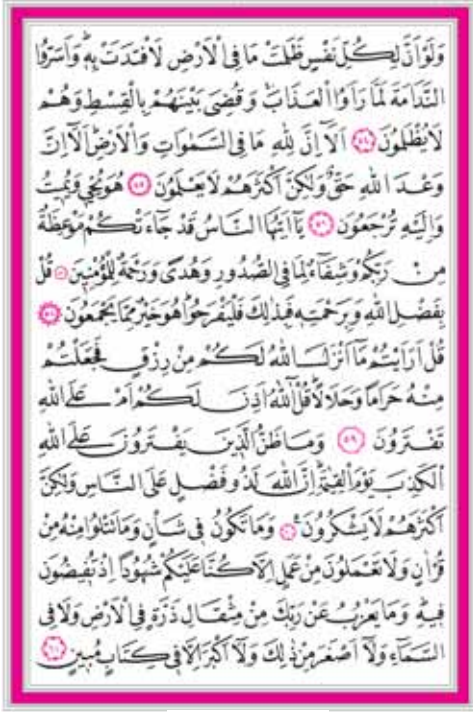 وَلَوْ اَنَّ لِكُلِّ نَفْسٍ ظَلَمَتْ مَا فِي الْاَرْضِ لَافْتَدَتْ بِهٖ وَاَسَرُّوا
النَّدَامَةَ لَمَّا رَاَوُا الْعَذَابَ وَقُضِيَ بَيْنَهُمْ بِالْقِسْطِ وَهُمْ
لَا يُظْلَمُونَ ﴿٥٤﴾ اَلَٓا اِنَّ لِلّٰهِ مَا فِي السَّمٰوَاتِ وَالْاَرْضِ اَلَٓا اِنَّ
وَعْدَ اللّٰهِ حَقٌّ وَلٰكِنَّ اَكْثَرَهُمْ لَا يَعْلَمُونَ ﴿٥٥﴾ هُوَ يُحْيٖ وَيُمٖيتُ
وَاِلَيْهِ تُرْجَعُونَ ﴿٥٦﴾ يَٓا اَيُّهَا النَّاسُ قَدْ جَٓاءَتْكُمْ مَوْعِظَةٌ
مِنْ رَبِّكُمْ وَشِفَٓاءٌ لِمَا فِي الصُّدُورِ وَهُدًى وَرَحْمَةٌ لِلْمُؤْمِنٖينَ ﴿٥٧﴾ قُلْ
بِفَضْلِ اللّٰهِ وَبِرَحْمَتِهٖ فَبِذٰلِكَ فَلْيَفْرَحُوا هُوَ خَيْرٌ مِمَّا يَجْمَعُونَ ﴿٥٨﴾
قُلْ اَرَاَيْتُمْ مَٓا اَنْزَلَ اللّٰهُ لَكُمْ مِنْ رِزْقٍ فَجَعَلْتُمْ
مِنْهُ حَرَامًا وَحَلَالًا قُلْ آٰللّٰهُ اَذِنَ لَكُمْ اَمْ عَلَى اللّٰهِ
تَفْتَرُونَ ﴿٥٩﴾ وَمَا ظَنُّ الَّذٖينَ يَفْتَرُونَ عَلَى اللّٰهِ
الْكَذِبَ يَوْمَ الْقِيٰمَةِ اِنَّ اللّٰهَ لَذُو فَضْلٍ عَلَى النَّاسِ وَلٰكِنَّ
اَكْثَرَهُمْ لَا يَشْكُرُونَ ﴿٦٠﴾ وَمَا تَكُونُ فٖي شَأْنٍ وَمَا تَتْلُوا مِنْهُ مِنْ
قُرْاٰنٍ وَلَا تَعْمَلُونَ مِنْ عَمَلٍ اِلَّا كُنَّا عَلَيْكُمْ شُهُودًا اِذْ تُفٖيضُونَ
فٖيهِ وَمَا يَعْزُبُ عَنْ رَبِّكَ مِنْ مِثْقَالِ ذَرَّةٍ فِي الْاَرْضِ وَلَا فِي
السَّمَٓاءِ وَلَٓا اَصْغَرَ مِنْ ذٰلِكَ وَلَٓا اَكْبَرَ اِلَّا فٖي كِتَابٍ مُبٖينٍ ﴿٦١﴾